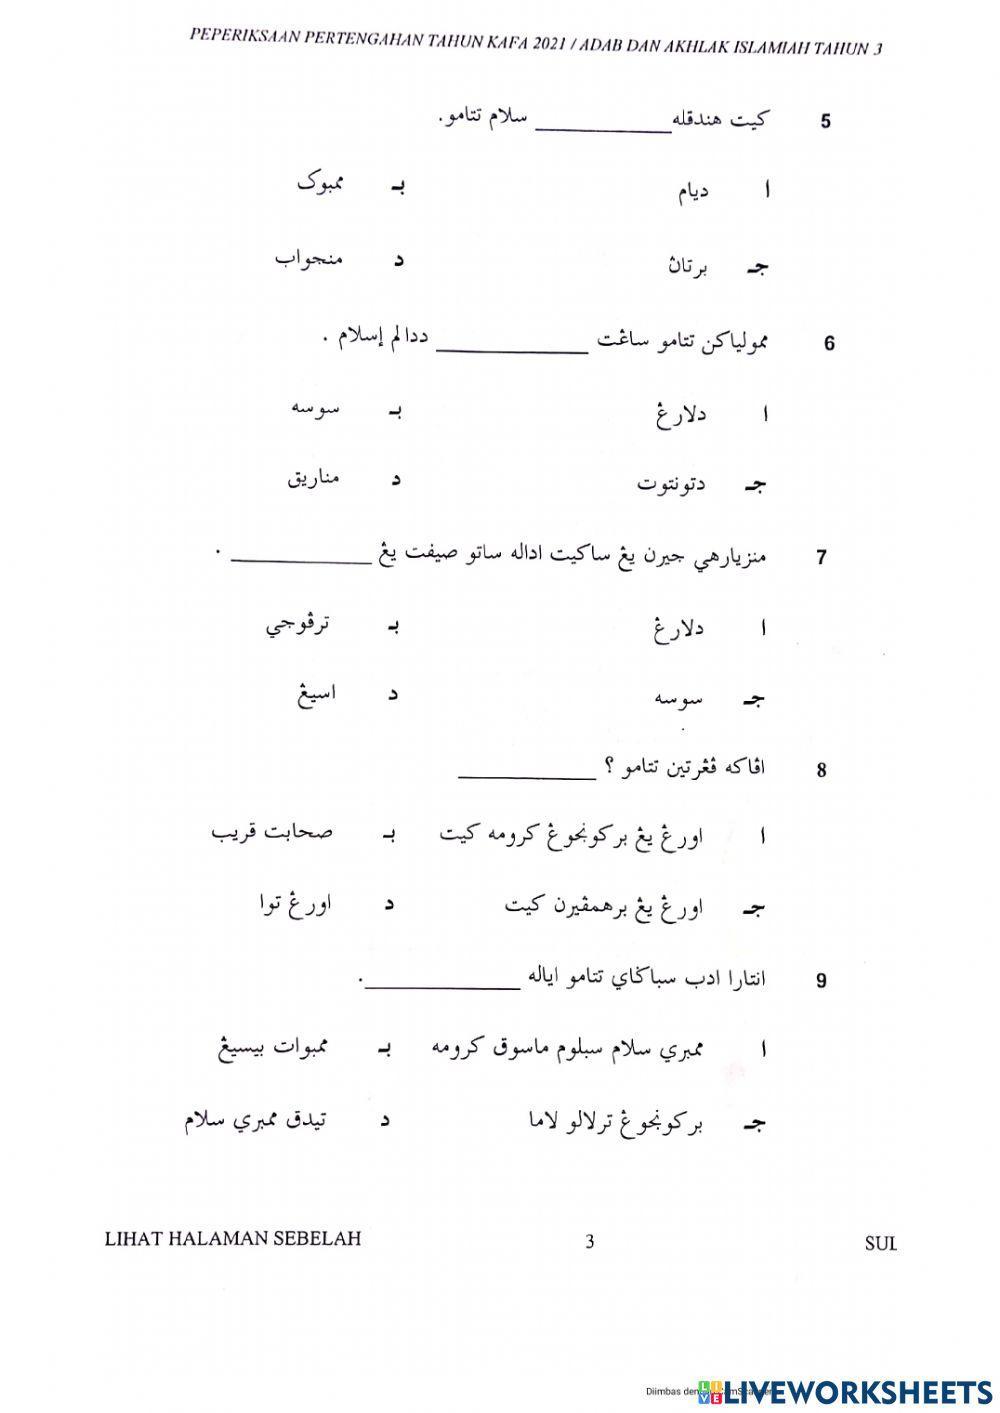 PEPERIKSAAN PERTENGAHAN TAHUN KAFA 2021 / ADAB DAN AKHLAK ISLAMIAH TAHUN 3
5 كيت هندقله __________ سلام تتامو.
ا ديام بـ ممبوک
جـ برتاڽ د منجواب
6 ممولياكن تتامو ساڠت __________ ددالم إسلام .
ا دلارڠ بـ سوسه
جـ دتونتوت د مناريق
7 منزيارهي جيرن يڠ ساكيت اداله ساتو صيفت يڠ __________ .
ا دلارڠ بـ ترڤوجي
جـ سوسه د اسيڠ
8 اڤاكه ڤڠرتين تتامو ؟ __________
ا اورڠ يڠ بركونجوڠ كرومه كيت بـ صحابت قريب
جـ اورڠ يڠ برهمڤيرن كيت د اورڠ توا
9 انتارا ادب سباݢاي تتامو اياله __________.
ا ممبري سلام سبلوم ماسوق كرومه بـ ممبوات بيسيڠ
جـ بركونجوڠ ترلالو لاما د تيدق ممبري سلام
LIHAT HALAMAN SEBELAH 3 SUL
Diimbas den
LIVEWORKSHEETS